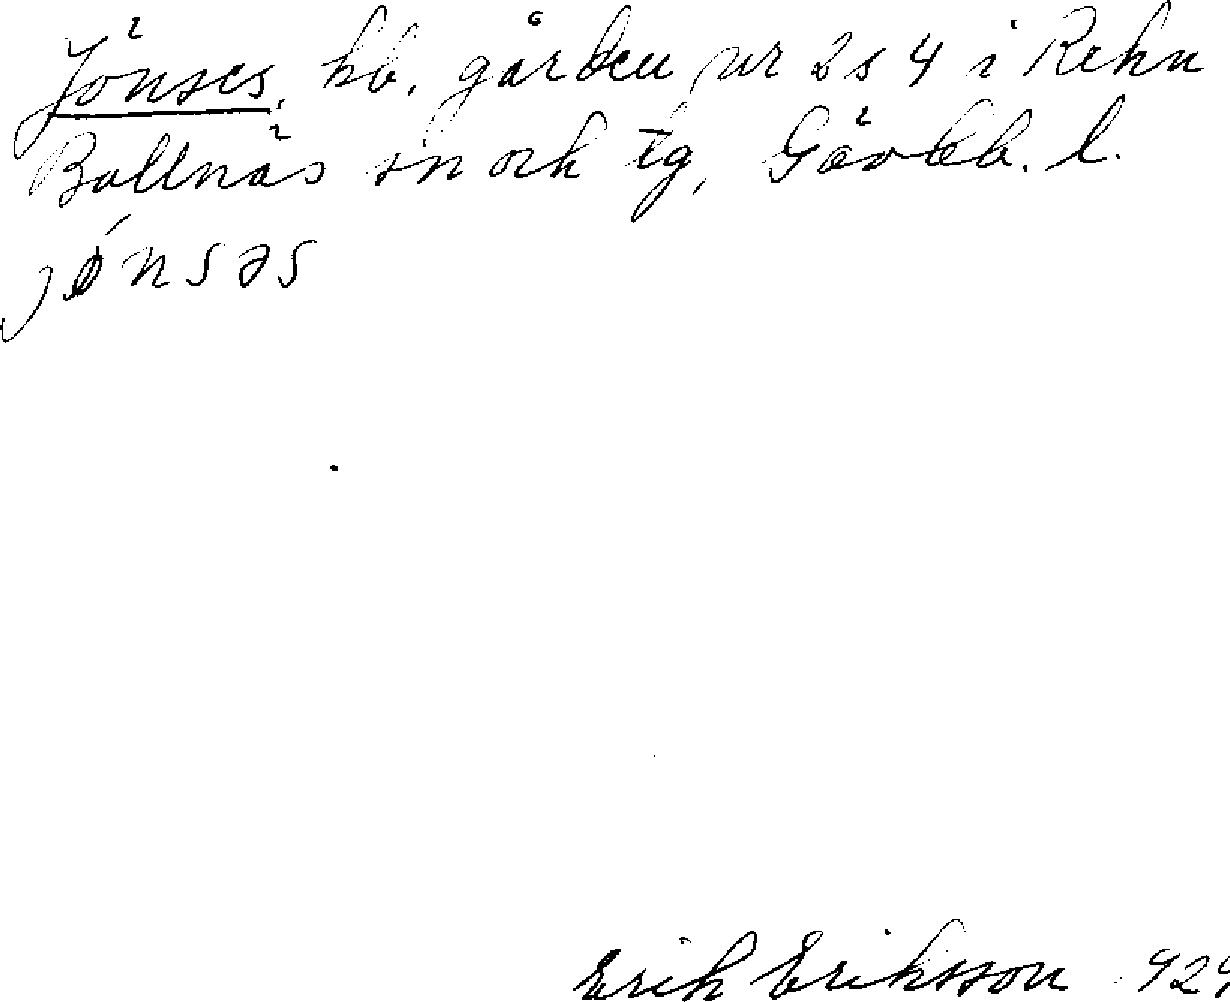 Jönses, hb. gården nr 2 s 4 i Rehn
Bollnäs sn och tg, Gävleb. l.
jónsəs
Erik Eriksson 929